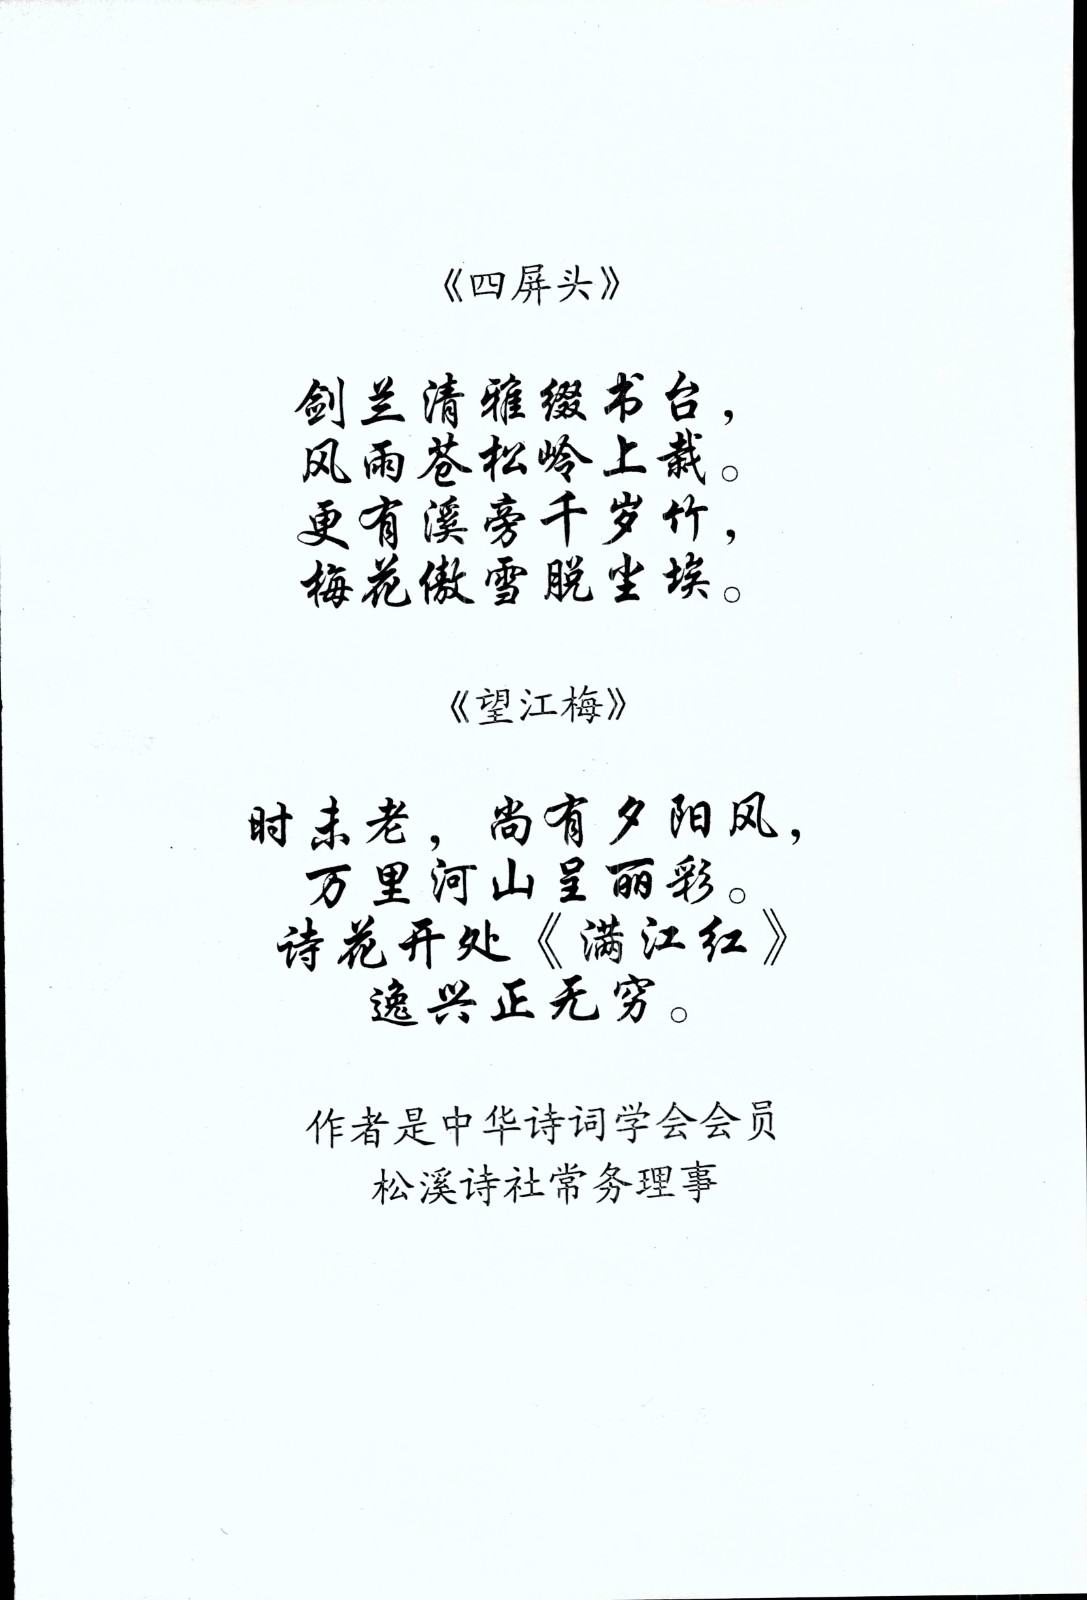 《四屏头》
剑兰清雅缀书台，
风雨苍松岭上栽。
更有溪旁千岁竹，
梅花傲雪脱尘埃。
《望江梅》
时未老，尚有夕阳风，
万里河山呈丽彩。
诗花开处《满江红》
逸兴正无穷。
作者是中华诗词学会会员
松溪诗社常务理事